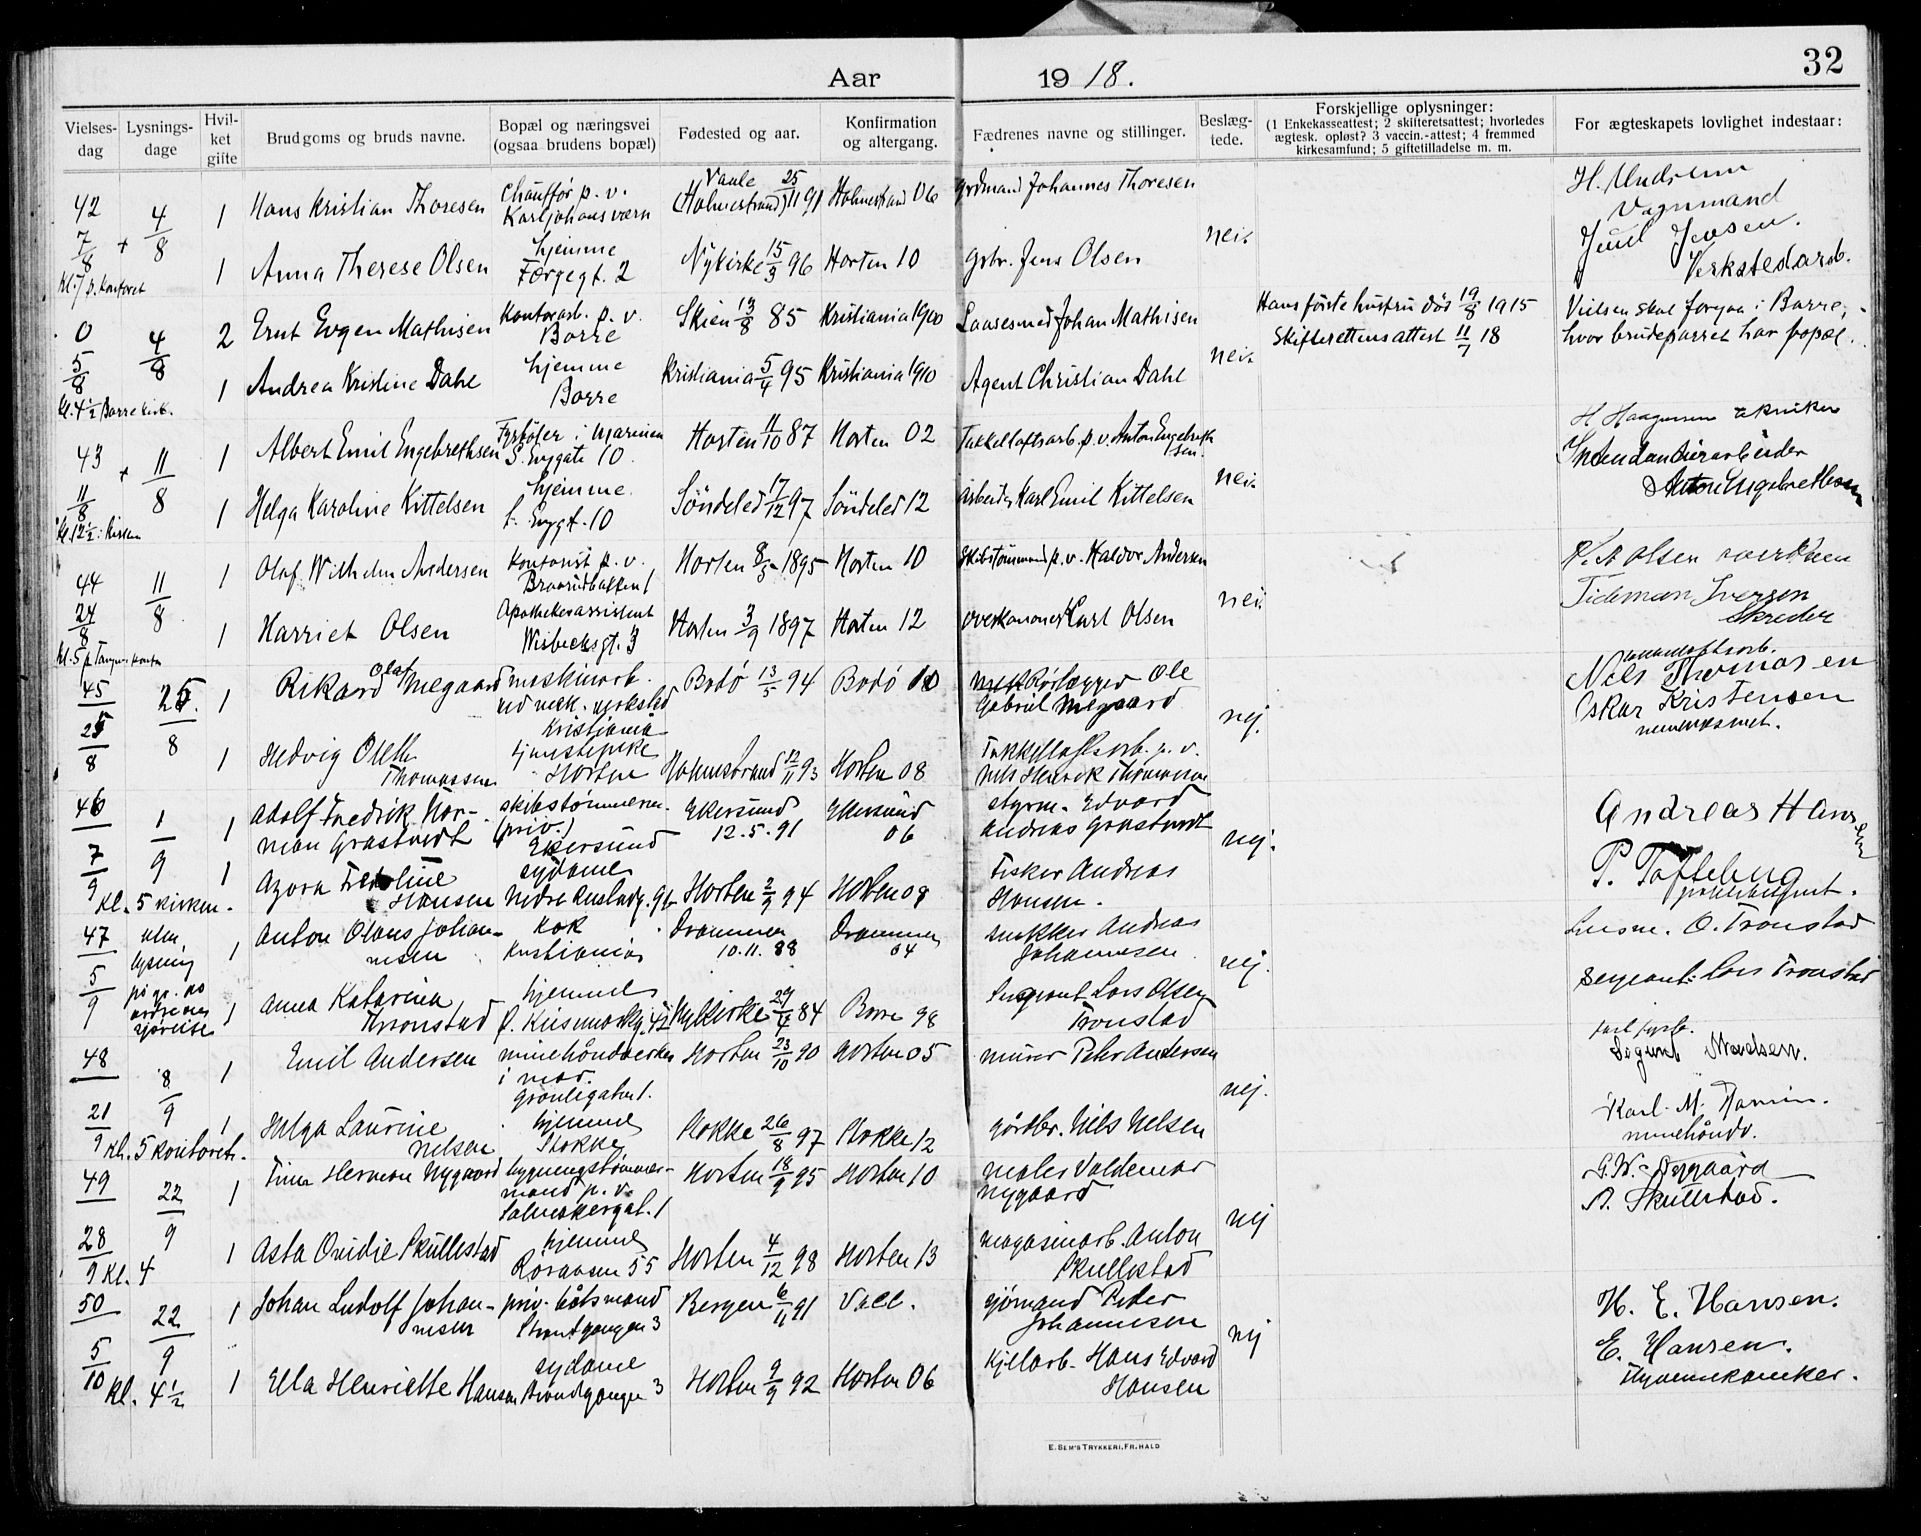 32
Aar 1918.
Vielses-dag
Lysnings-dage
Hvil-ket gifte
Brudgoms og bruds navne.
Bopæl og næringsvei (ogsaa brudens bopæl)
Fødested og aar.
Konfirmation og altergang.
Fædrenes navne og stillinger.
Beslæg-tede.
Forskjellige oplysninger:
(1 Enkekasseattest; 2 skifteretsattest; hvorledes ægtesk. opløst? 3 vaccin.-attest; 4 fremmed kirkesamfund; 5 giftetilladelse m. m.
For ægteskapets lovlighet indestaar:
42 4/8 1 Hans Kristian Thoresen Chauffør p. v. Karljohansværn Vaale (Holmestrand) 25/11 91 Holmestrand 06 Grdmand Johannes Thoresen
Vognmand
7/8 + 1 Anna Therese Olsen hjemme Færgegt. 2 Nykirke 15/3 96 Horten 10 Grbr. Jens Olsen nei.
Juul Jensen. Verkstedarb.
Kl. 7 p. kontoret
0 4/8 2 Ernt Evgen Mathisen Kontorarb. p. v. Borre Skien 19/8 85 Kristiania 1900 Laasesmed Johan Mathisen Hans første hustru død 19/8 1915 Vielsen skal foregaa i Borre,
Skifterettens attest 11/7 18 hvor brudeparret har bopæl.
5/8 1 Andrea Kristine Dahl hjemme Borre Kristiania 5/4 95 Kristiania 1910 Agent Christian Dahl nei.
kl. 4½ Borre kirk.
43 + 11/8 1 Albert Emil Engebrethsen Fyrbøter i Marinen S. Enggate 10 Horten 11/10 87 Horten 02 Takkelloftsarb. p. v. Anton Engebrethsen
H Haagensen
Intendanturarbeider
11/8 1 Helga Karoline Kittelsen hjemme S. Enggt. 10 Søndeled 17/12 97 Søndeled 12 Arbeider Karl Emil Kittelsen nei.
Anton Engebrethsen
kl. 12½ i Kirken
44 11/8 1 Olaf Wilhelm Andersen Kontorist p. v. Braarudbakken 1 Horten 8/3 1895 Horten 10 Skibstømmermd p. v. Haldor Andersen
Olsen
24/8 1 Harriet Olsen Apothekerassistent Wisbecksgt. 3 Horten 3/9 1897 Horten 12 Overkanoner Carl Olsen nei
Tideman Iversen Skredder
Kl. 5 p.
45 25/8 1 Rikard Olaf Megaard maskinarb. ved mek. verksted Kristiania Bodø 13/5 94 Bodø 10 Rørlægger Ole Gabriel Megaard nej.
Nils Thomassen
Oskar Kristensen
25/8 1 Hedvig Oleth Thomassen tjenestepike Horten Holmestrand 12/11 93 Horten 08 Takkelloftsarb. p. v. Nils Henrik Thomassen
46 1/9 1 Adolf Fredrik Norman Grastvedt skibstømmerm. (priv.) Ekersund Ekersund 12.5.91 Ekersund 06 styrm. Edvard Andreas Grastvedt nej.
Andreas Hansen
7/9 1 Azora Hansen sydame 96 Horten 2/9 94 Horten 08 Fisker Andreas Hansen.
P. Tofteberg
Kl. 5 kirken.
47 uten lysning 1 Anton Olaus Johannesen Kok Kristiania Drammen 10.11.88 Drammen 04 snekker Andreas Johannesen nej.
O. Tronstad
5/9 sjøreise 1 Anna Katarina Thronstad hjemme Nykirke 29/4 84 Borre 98 Sergeant Lars Olsen Tronstad
Sergeant. Lars Tronstad
48 8/9 1 Emil Andersen minehåndverker i mar. Grønligaten 1. Horten 23/10 90 Horten 05 murer Peter Andersen nej.
Sigurd Madsen.
21/9 1 Helga Laurine Nelsen hjemme Stokke Stokke 26/8 97 Stokke 12 gårdbr. Nils Nelsen
Karl M.
minehåndv.
Kl. 5 kontoret.
49 22/9 1 Finn Herman Nygaard bygningstømmermand p. v. 1 Horten 18/9 95 Horten 10 maler Valdemar Nygaard nej
G. W. Nygaard
A. Skullestad.
28/9 1 Asta Ovidie Skullestad hjemme Røraasen 55 Horten 4/12 98 Horten 13 magasinarb. Anton Skullestad
Kl. 4
50 22/9 1 Johan Ludolf Johannesen priv. båtsmand Strandgangen 3 Bergen 6/11 91 Vall. sjømand Peder Johannesen nej
H. E. Hansen.
5/10 1 Ella Henriette Hansen sydame Strandgangen 3 Horten 9/9 92 Horten 06 Kjelarb. Hans Edvard Hansen
E. Hansen.
Kl. 4½
E. SEM'S TRYKKERI, FR.HALD